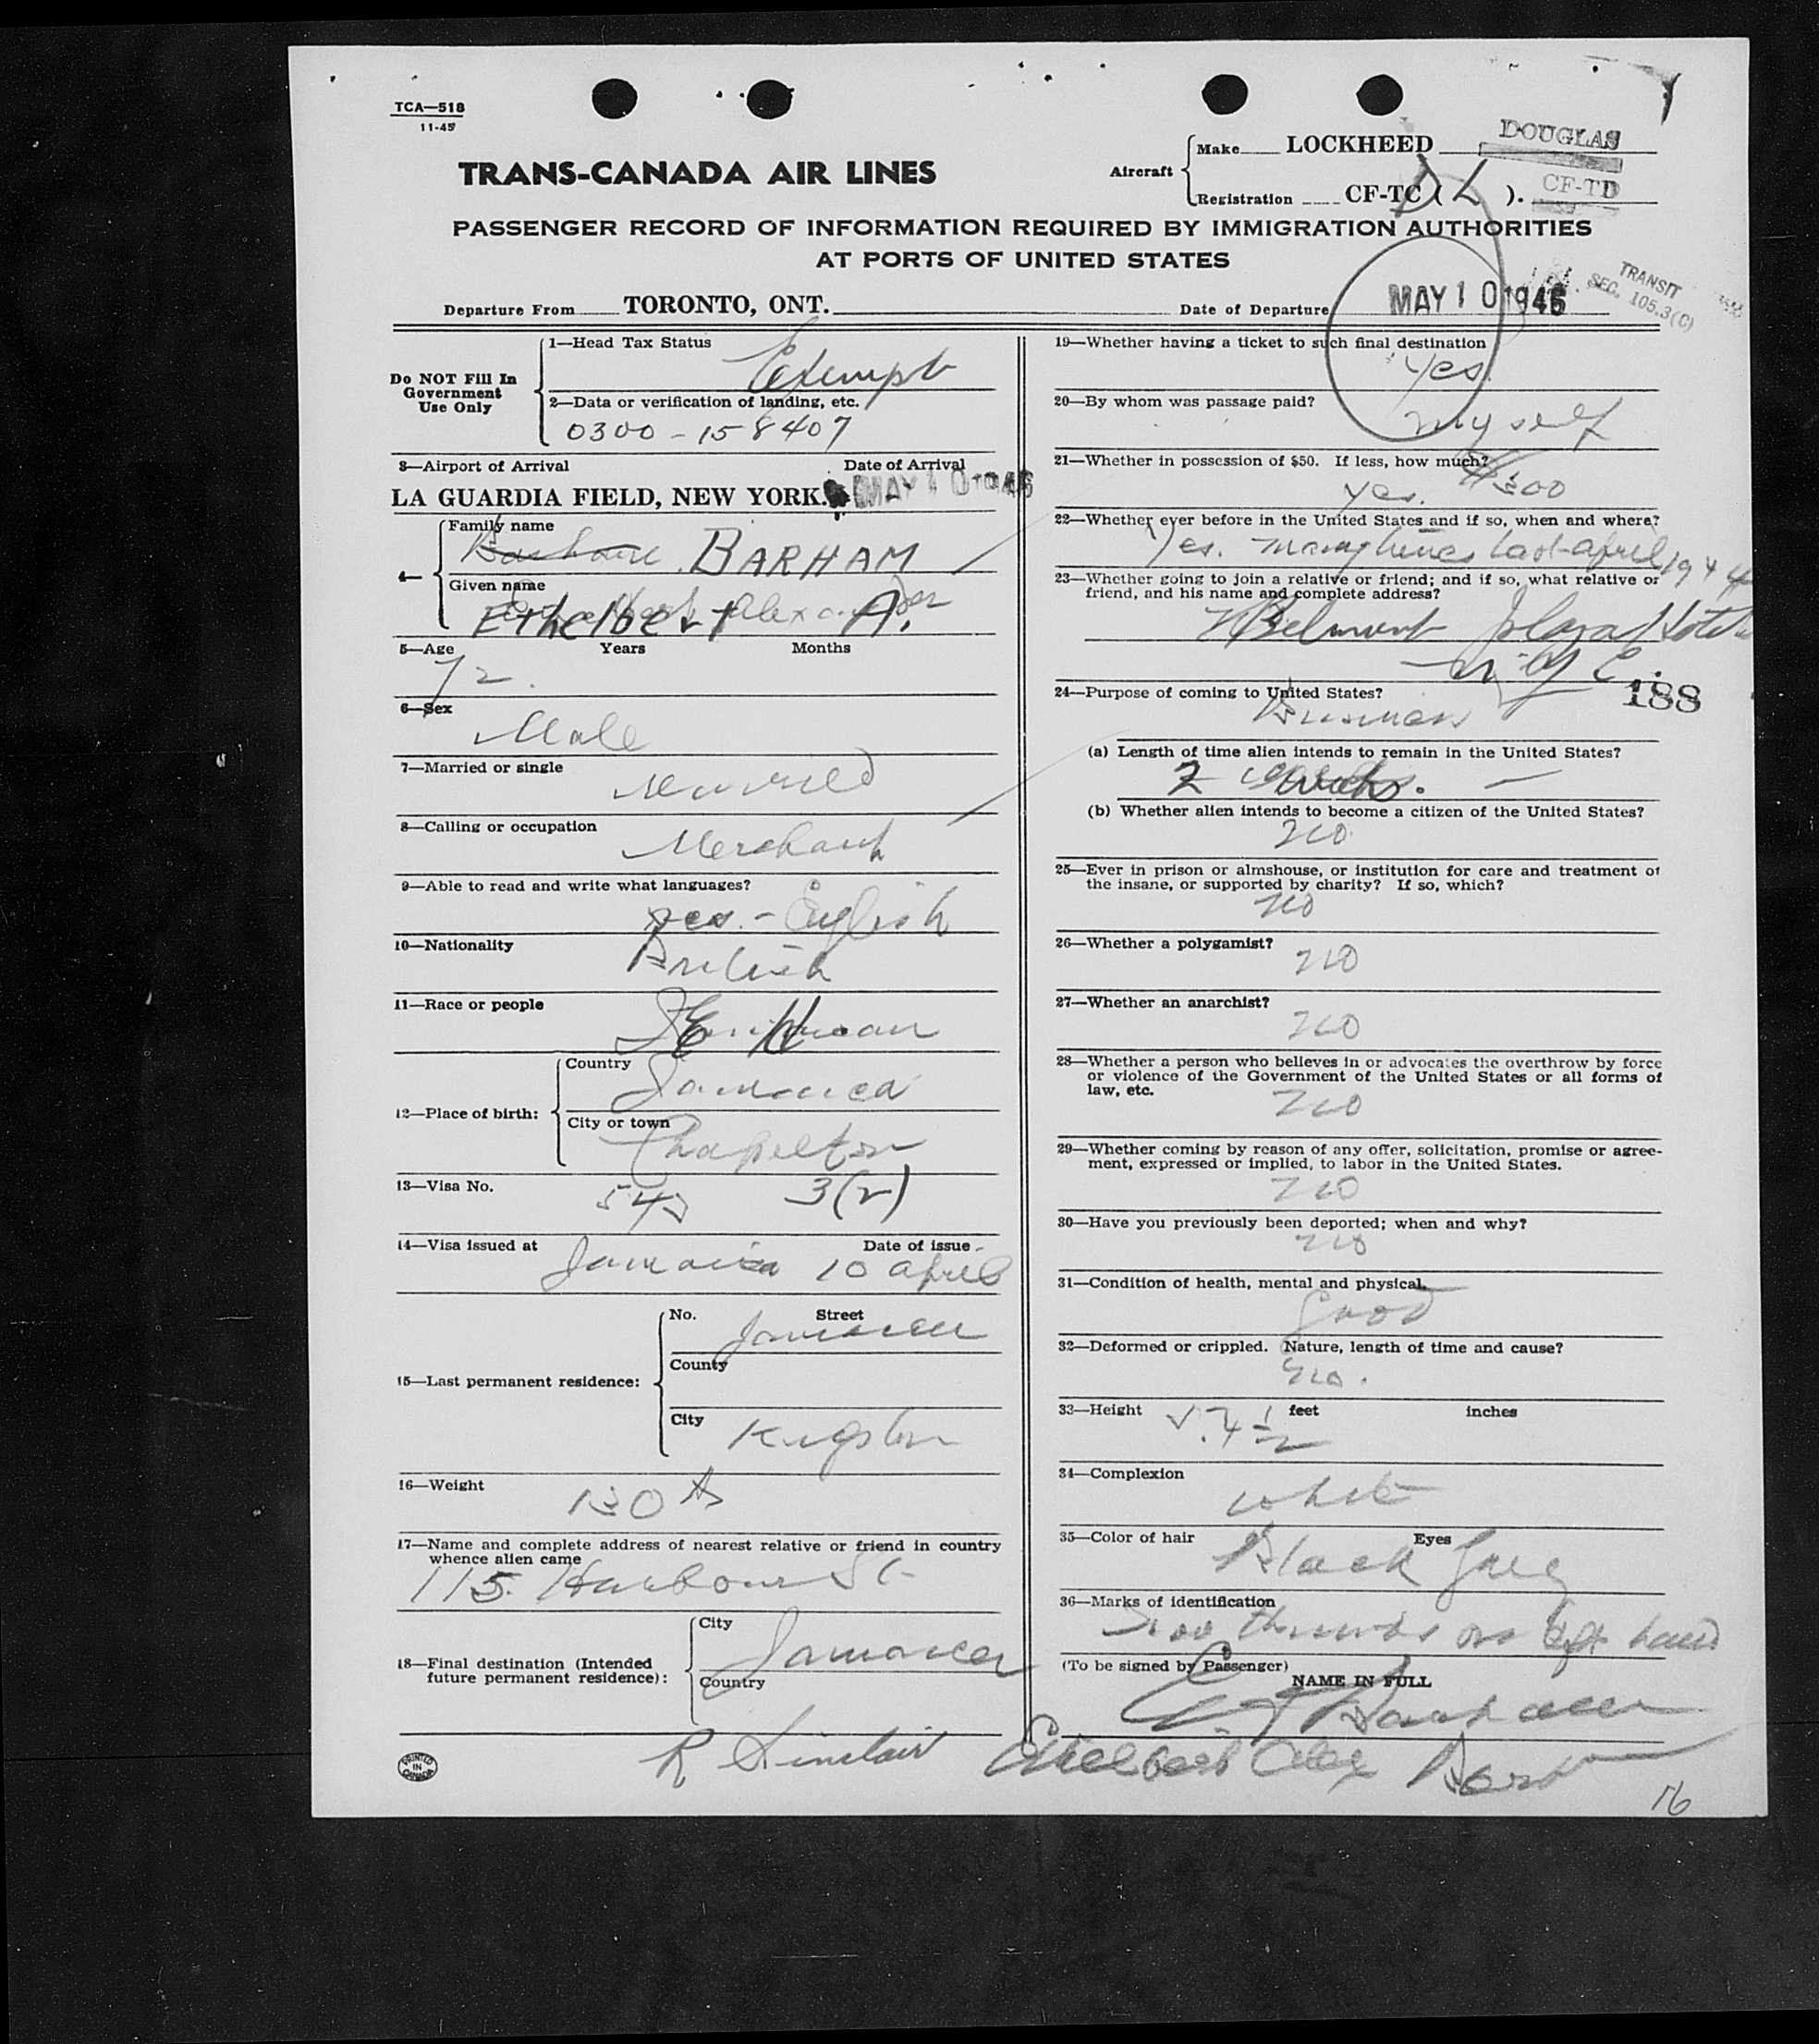 TCA—518
11-45
TRANS-CANADA AIR LINES
Aircraft
Make LOCKHEED DOUGLAS
Registration CF-TC ( L ). CF-TD
PASSENGER RECORD OF INFORMATION REQUIRED BY IMMIGRATION AUTHORITIES
AT PORTS OF UNITED STATES
TRANSIT
SEC. 105.3(C)
Departure From TORONTO, ONT. Date of Departure MAY 10 1946
Do NOT Fill In
Government
Use Only
1—Head Tax Status
Exempt
2—Data or verification of landing, etc.
0300-158407
3—Airport of Arrival Date of Arrival
LA GUARDIA FIELD, NEW YORK. MAY 10 1946
4—
Family name
Barham BARHAM
Given name
Ethelbert Alexander A.
5—Age Years Months
72.
6—Sex
Male
7—Married or single
Married
8—Calling or occupation
Merchant
9—Able to read and write what languages?
yes. - English
10—Nationality
British
11—Race or people
12—Place of birth:
Country
Jamaica
City or town
Chapelton
13—Visa No.
545 3(2)
14—Visa issued at Date of issue
Jamaica 10 April
15—Last permanent residence:
No. Street
Jamaica
County
City
Kingston
16—Weight
130
17—Name and complete address of nearest relative or friend in country
whence alien came
115. Harbour St.
18—Final destination (Intended
future permanent residence):
City
Jamaica
Country
R Sinclair
PRINTED
IN
CANADA
19—Whether having a ticket to such final destination
yes.
20—By whom was passage paid?
myself
21—Whether in possession of $50. If less, how much?
yes. $300
22—Whether ever before in the United States and if so, when and where?
Yes. many times last April 1944
23—Whether going to join a relative or friend; and if so, what relative or
friend, and his name and complete address?
Belmont Plaza Hotel
N.Y.C.
188
24—Purpose of coming to United States?
Business
(a) Length of time alien intends to remain in the United States?
2 weeks.
(b) Whether alien intends to become a citizen of the United States?
no
25—Ever in prison or almshouse, or institution for care and treatment of
the insane, or supported by charity? If so, which?
no
26—Whether a polygamist?
no
27—Whether an anarchist?
no
28—Whether a person who believes in or advocates the overthrow by force
or violence of the Government of the United States or all forms of
law, etc.
no
29—Whether coming by reason of any offer, solicitation, promise or agree-
ment, expressed or implied, to labor in the United States.
no
30—Have you previously been deported; when and why?
no
31—Condition of health, mental and physical.
good
32—Deformed or crippled. Nature, length of time and cause?
no.
33—Height feet inches
5.7 1/2
34—Complexion
white
35—Color of hair Eyes
Black Grey
36—Marks of identification
Two thumbs on left hand
(To be signed by Passenger)
NAME IN FULL
E A Barham
Ethelbert Alex Barham
16